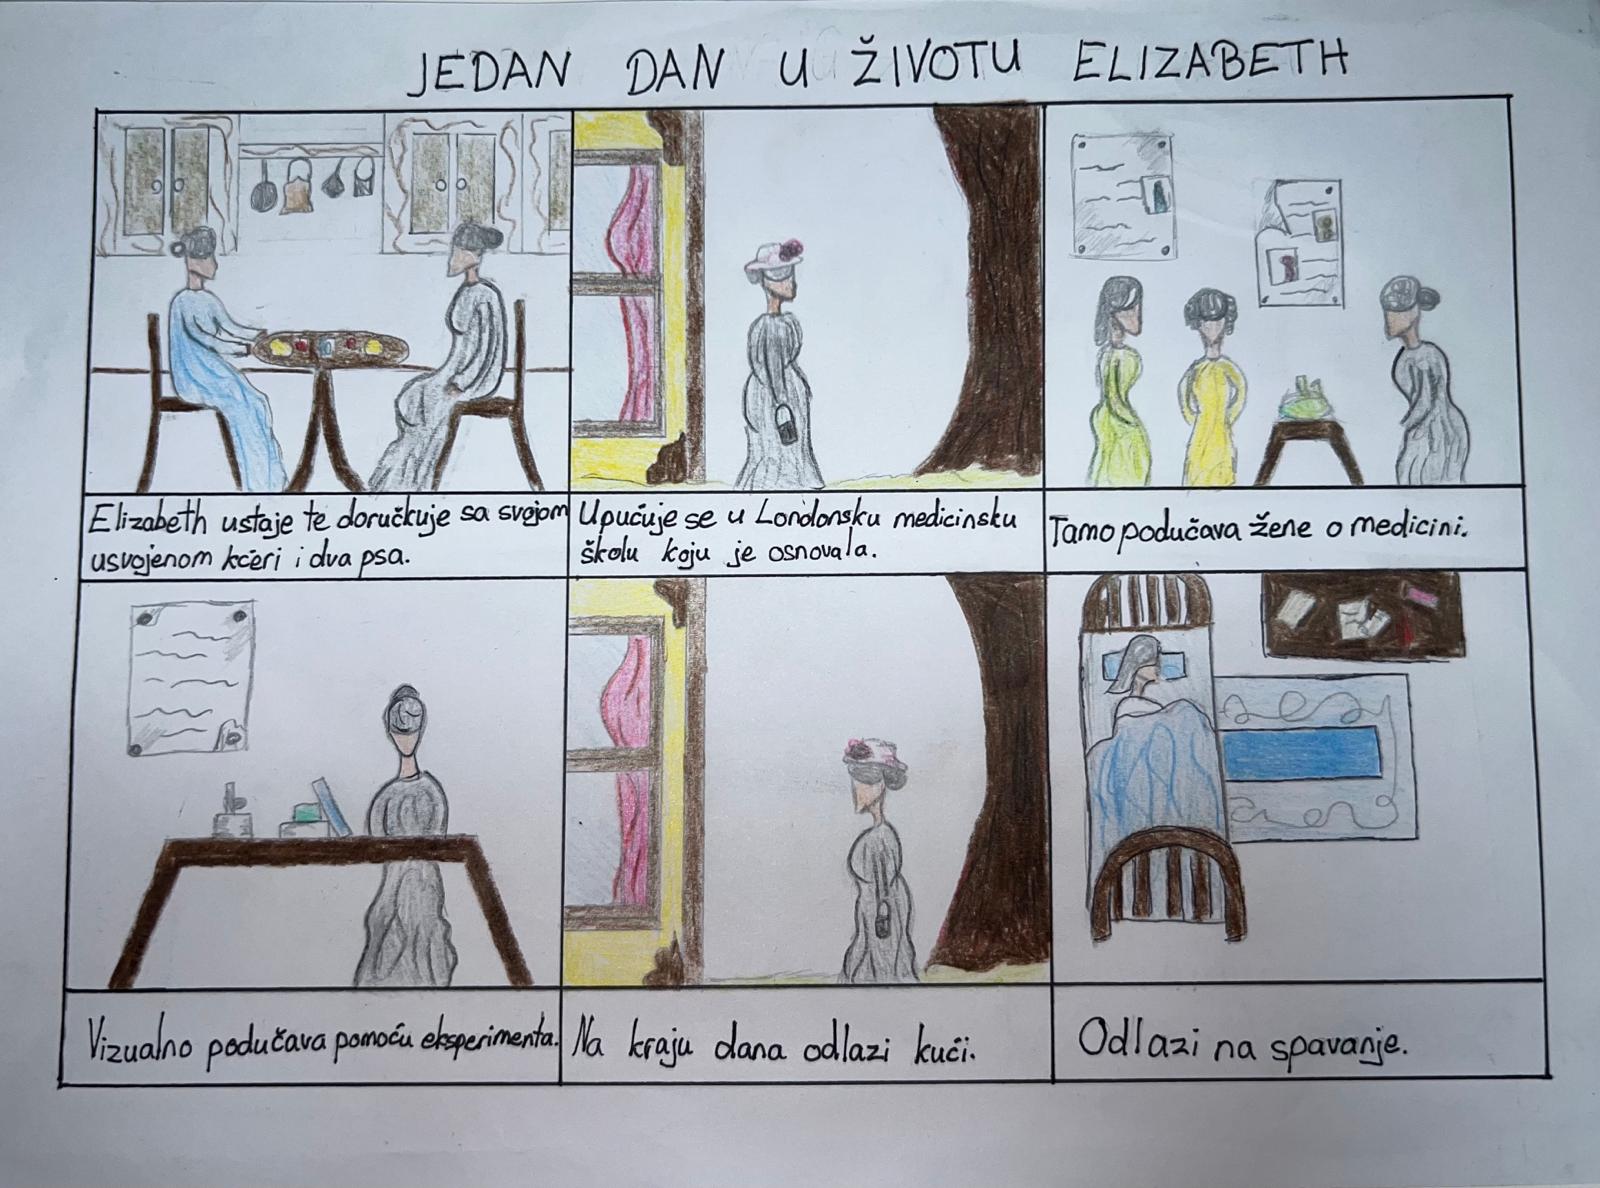 JEDAN DAN U ŽIVOTU ELIZABETH
Elizabeth ustaje te doručkuje sa svojom
usvojenom kćeri i dva psa.
Upućuje se u Londonsku medicinsku
školu koju je osnovala.
Tamo podučava žene o medicini.
Vizualno podučava pomoću eksperimenta.
Na kraju dana odlazi kući.
Odlazi na spavanje.